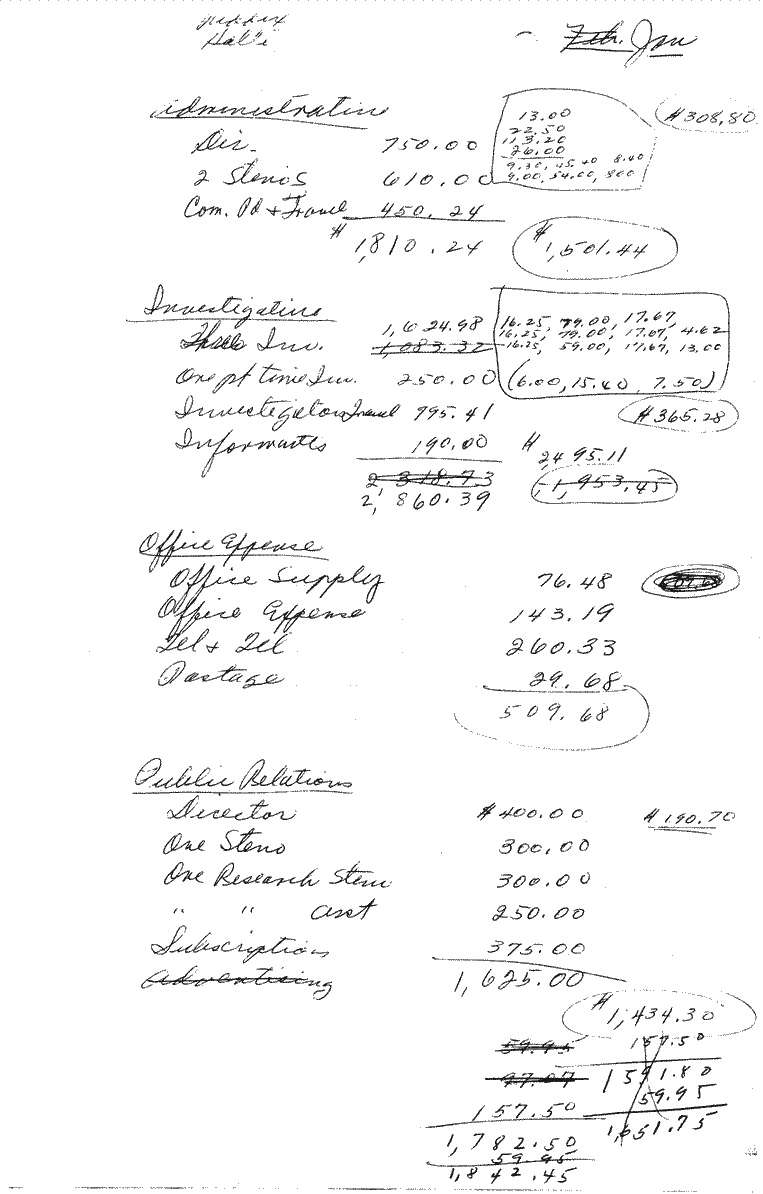 Feb. Jan
Administrative
13.00
22.50
113.20
26.00
9.30, 45.40 8.40
9.00, 54.00, 800
#308.80
Dir. 750.00
2 Stenos 610.00
Com. Pd + Travel 450.24
# 1,810.24 # 1,501.44
Investigative
1,624.98
Three Inv. 1,083.32
16.25, 79.00, 17.67,
16.25, 79.00, 17.67, 4.62
16.25, 59.00, 17.67, 13.00
One pt time Inv. 250.00 (6.00, 15.40, 7.50)
Investigators Travel 795.41 #365.28
Informants 190.00 # 2495.11
2,318.73 1,953.45
2,860.39
Office Expense
Office Supply 76.48
Office Expense 143.19
Tel + Tel 260.33
Postage 29.68
509.68
Public Relations
Director #400.00 #190.70
One Steno 300.00
One Research Steno 300.00
" " asst 250.00
Subscription 375.00
Advertising 1,625.00
# 1,434.30
59.95 157.50
97.07 1591.80
157.50 59.95
1,782.50 1,651.75
59.95
1,842.45